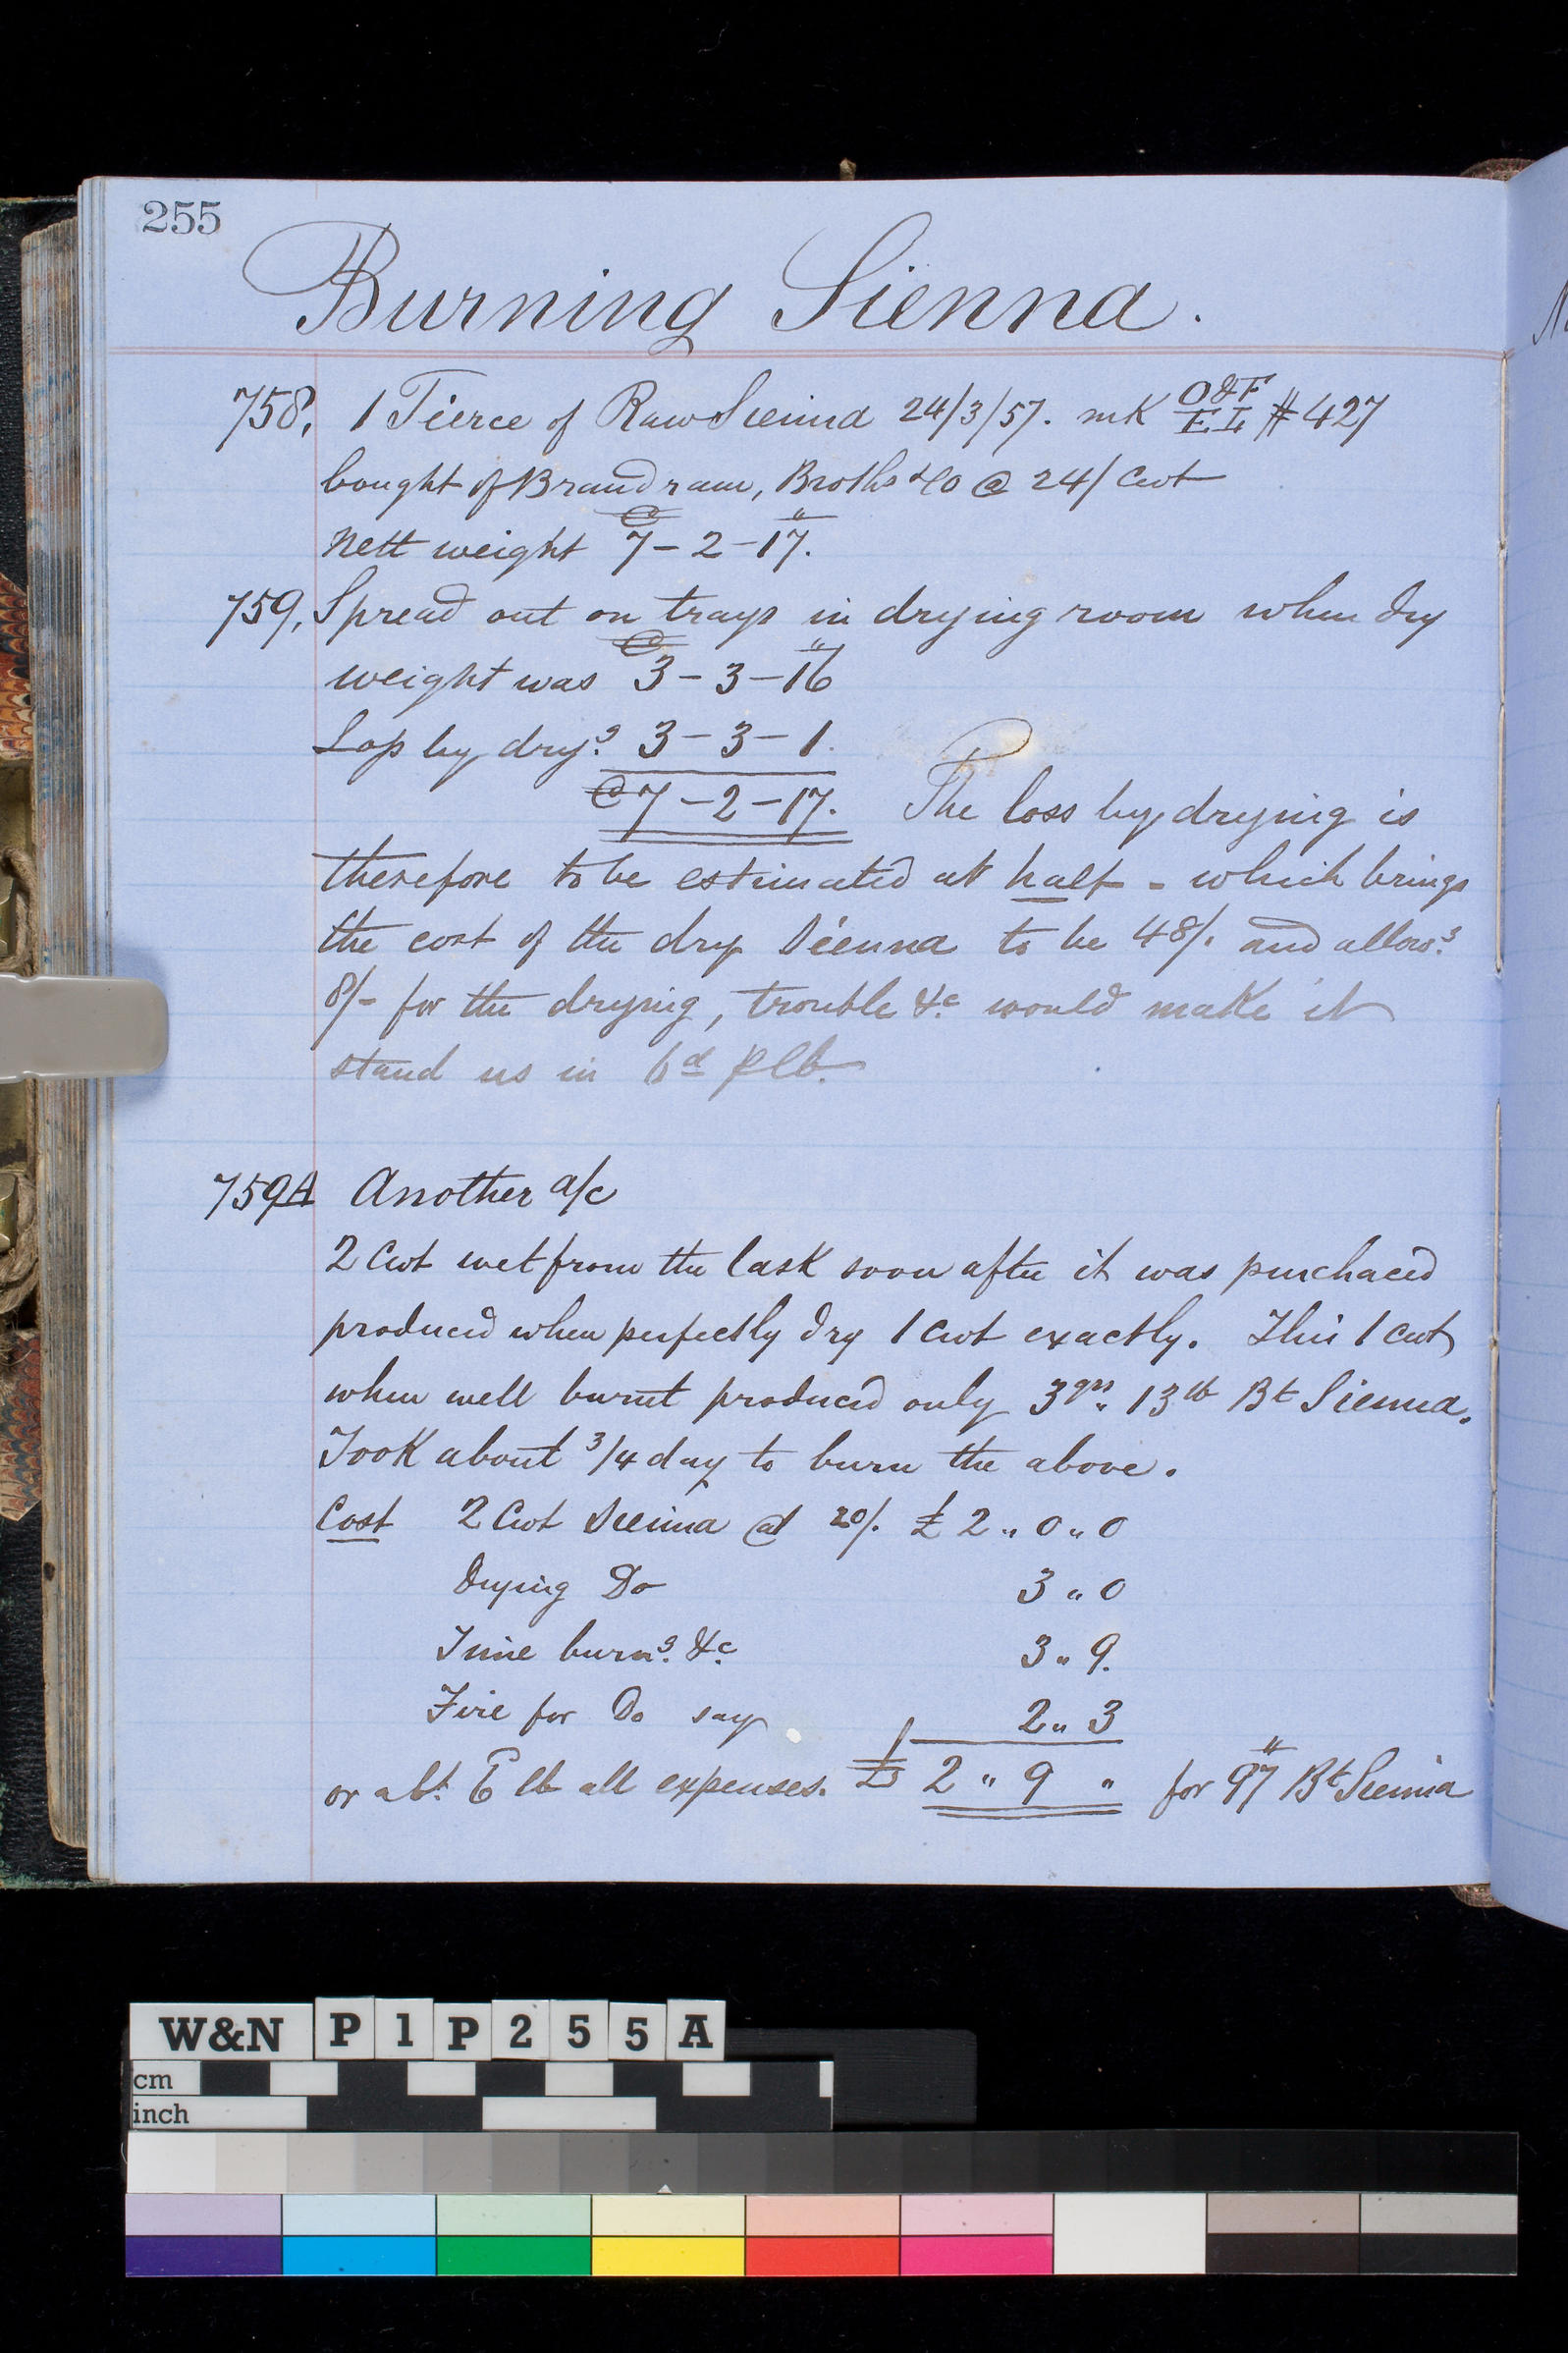 255
Burning Sienna.
758, 1 Tierce of Raw Sienna 24/3/57. mK O&F #427
EI
bought of Brandram, Broths &Co @ 24/ Cwt
C "
Nett weight 7-2-17.
759, Spread out on trays in drying room when dry
C "
weight was 3-3-16
Loss by dryg. 3-3-1.
C 7-2-17. The loss by drying is
therefore to be estimated at half - which brings
the cost of the dry Sienna to be 48/. and allowg.
8/- for the drying, trouble &c would make it
stand us in 6d P lb.
759A Another a/c
2 Cwt wet from the Cask soon after it was purchaced
produced when perfectly dry 1 Cwt exactly. This 1 Cwt
when well burnt produced only 3qrs " 13lb Bt Sienna.
Took about 3/4 day to burn the above.
Cost 2 Cwt Sienna at 20/. £2 " 0 " 0
Drying Do 3 " 0
Time burng. &c 3 " 9.
Fire for Do say 2 " 3
or abt. 6 lb all expenses. £ 2 " 9 " for 97 " Bt Sienna
W&N P 1 P 2 5 5 A
cm
inch